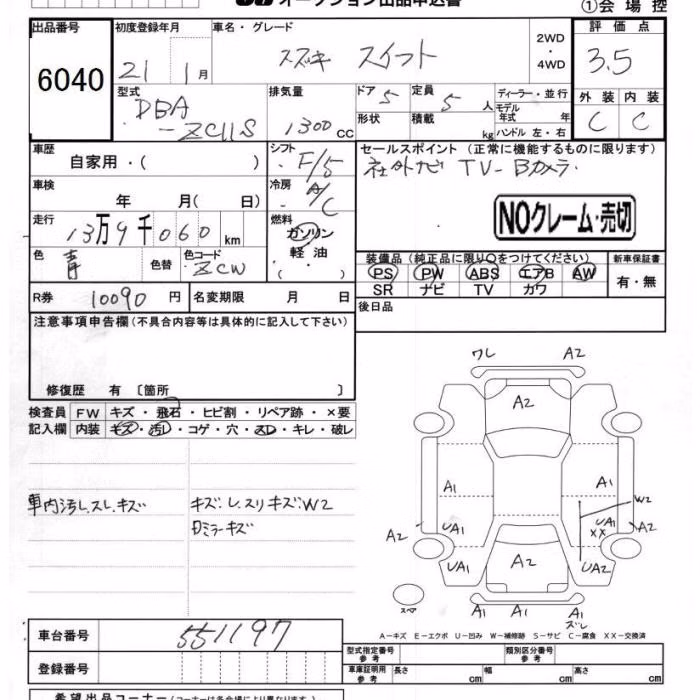 オークション出品申込書
①会場控
出品番号
6040
初度登録年月
21 1月
車名・グレード
スズキ スイフト
2WD
・
4WD
評価点
3.5
外装 内装
C C
型式
DBA
-ZC11S
排気量
1300 CC
ドア 5
形状
定員 5 人
積載 kg
ディーラー・並行
モデル年式 年
ハンドル 左・右
車歴
自家用・( )
シフト
F/5
車検
年 月( 日)
冷房
A/C
走行
13万9千060 km
燃料
ガソリン
軽油
・( )
色 青
色替
色コード ZCW
R券 10090 円
名変期限 月 日
セールスポイント (正常に機能するものに限ります)
社外ナビ TV-Bカメラ.
NOクレーム・売切
装備品(純正品に限り○をつけてください)
PS PW ABS エアB AW
SR ナビ TV カワ
新車保証書
有・無
後日品
注意事項申告欄(不具合内容等は具体的に記入して下さい)
修復歴 有 〔箇所 〕
検査員記入欄
FW キズ・飛石・ヒビ割・リペア跡・×要
内装 キズ・汚れ・コゲ・穴・スレ・キレ・破レ
車内汚レ.スレ.キズ
キズ:レ.スリキズ:W2
ミラーキズ
ワレ A2
A2
A1 A1
W2
A2 UA1 UA1 A2
XX
UA1 A2 UA2
スペア
A1 A1 A1
ズレ
A−キズ E−エクボ U−凹み W−補修跡 S−サビ C−腐食 XX−交換済
車台番号 551197
登録番号
型式指定番号 参考
類別区分番号 参考
車庫証明用 参考
長さ cm
幅 cm
高さ cm
希望出品コーナー(コーナーは各会場により異なります)